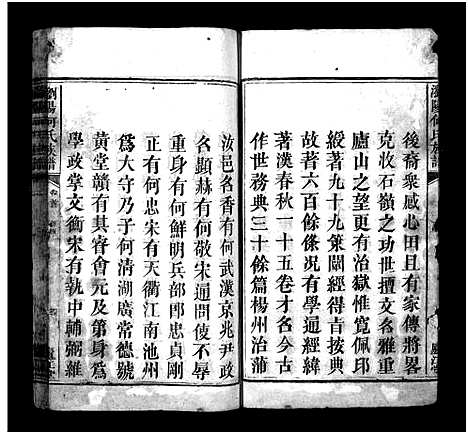 瀏陽何氏族譜
後裔衆感心田且有家傳將畧
克收石嶺之功世擅文名雅重
廬山之望更有治獄惟寬佩邱
綬著九十九策闡經得吉按典
故著六百餘條况有學通經緯
著漢春秋一十五卷才名今古
作世務典三十餘篇楊州治蒲
汝邑名香有何武漢京兆尹政
名顯赫有何敬宋通問使不辱
重身有何鮮明兵部郎忠貞剛
正有何忠宋有天衢江南池州
爲大守乃子何清湖廣常德號
黄堂贛有其睿會元及第身爲
學政掌文衡宋有執中輔弼雜
瀏陽何氏族譜
卷首
廬江堂